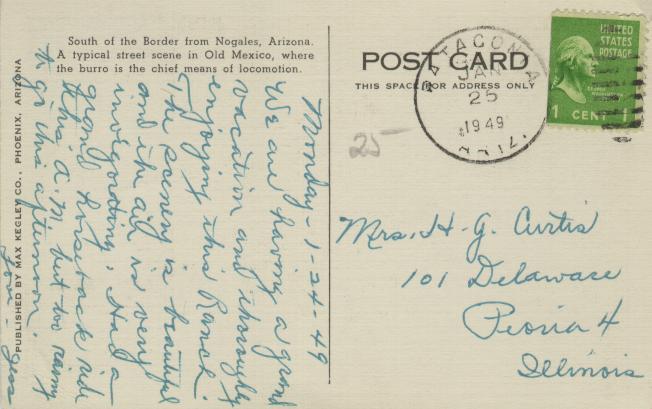 South of the Border from Nogales, Arizona.
A typical street scene in Old Mexico, where
the burro is the chief means of locomotion.
PUBLISHED BY MAX KEGLEY CO., PHOENIX, ARIZONA
Monday - 1-24-49
We are having a grand
vacation and thoroughly
enjoying this Ranch.
The scenery is beautiful
and the air is very
invigorating. Had a
grand horseback ride
this a.m. but too rainy
to go this afternoon.
Love - Jess
POST CARD
THIS SPACE FOR ADDRESS ONLY
PATAGONIA
JAN
25
1949
ARIZ.
UNITED
STATES
POSTAGE
1 CENT 1
25
Mrs. H. G. Curtis
101 Delaware
Peoria 4
Illinois